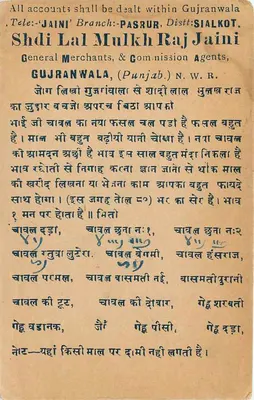 All accounts shall be dealt within Gujranwala
Tele:-'JAINI' Branch:-PASRUR. Distt:SIALKOT.
Shdi Lal Mulkh Raj Jaini
General Merchants, & Commission Agents,
GUJRANWALA, (Punjab.) N. W. R.
जोग लिखी गुजरांवाला से शादीलाल मुलखराज
का जुहार बंचजो अपरंच चिठी आपकी
भाई जी चावल का नया फसल चल पड़ा है फसल बहुत
है। माल भी बहुत बढ़ीया यानी चोखा है। नया चावल
की आमदन अछी है भाव इस साल बहुत मंदा निकला है
भाव को देखते हुए
की खरीद लिखना या भेजना काम आपका बहुत फायदे
साथ होगा। (इस जगह तोल ८०) भर का सेर है। भाव
१ मन पर होता है॥ मिती
चावल दड़ा, चावल छता नः१, चावल छता नः२
चावल बेगमी, चावल हंसराज,
चावल परमल, चावल बासमती नई, बासमती पुरानी
चावल की टूट, चावल की दोबार, गेहूं शरबती
गेहूं वडानक, जौं गेहूं पीसी, गेहूं दड़ा,
नोट—यहां किसी माल पर दामी नही लगती है।